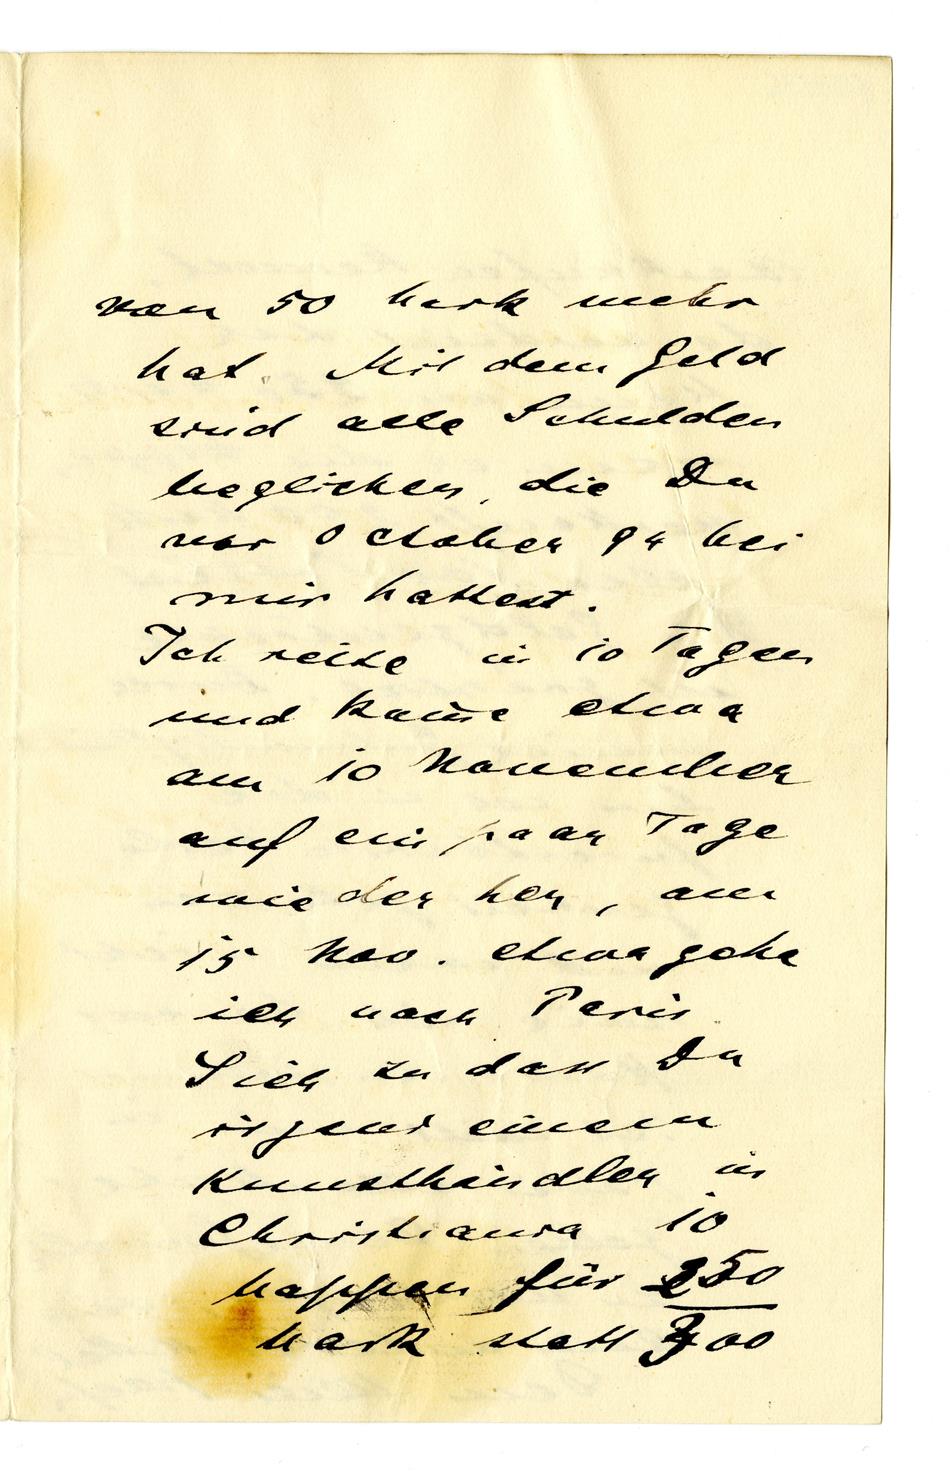 von 50 Mark mehr
hat. Mit dem Geld
sind alle Schulden
beglichen, die Du
vor October 94 bei
mir hattest.
Ich reise in 10 Tagen
und kom̄e etwa
am 10 November
auf ein paar Tage
wieder her, am
15 Nov. etwa gehe
ich nach Paris
Sieh zu dass Du
irgend einem
Kunsthändler in
Christiania 10
Mappen für 250
Mark statt 300